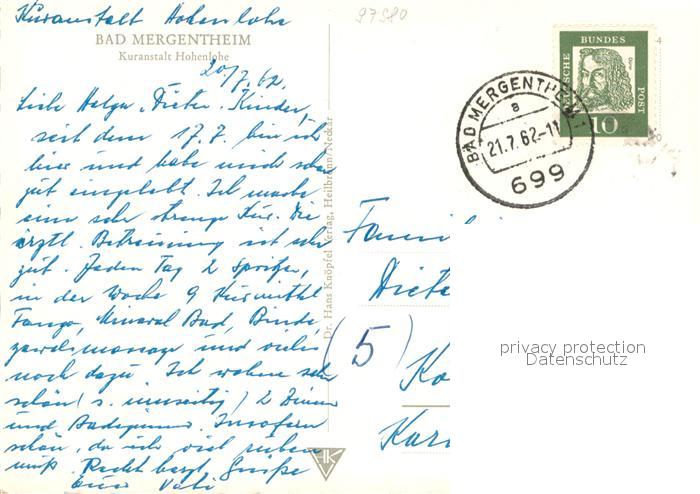 Kuranstalt Hohenlohe
97580
BAD MERGENTHEIM
Kuranstalt Hohenlohe
20/7.62.
Liebe Helga, Dieter, Kinder,
seit dem 17.7. bin ich
hier und habe mich schon
gut eingelebt. Ich mache
eine sehr strenge Kur. Die
ärztl. Betreuung ist sehr
gut. Jeden Tag 2 Spritzen,
in der Woche 9 Kurmittel
Fango, Mineral Bad, Binde-
gewebsmassage und vieles
noch dazu. Ich wohne sehr
schön (s. umseitig) 2 Zimmer
und Badezimmer. Insofern
schön, da ich viel ruhen
muß. Recht herzl. Grüße
Euer Vati
Dr. Hans Knöpfel Verlag, Heilbronn/Neckar
HK
DEUTSCHE BUNDESPOST
Dürer
10
BAD MERGENTHEIM 1
a
21.7.62-11
699
Famili
Diete
(5) Ko
Kar
privacy protection
Datenschutz